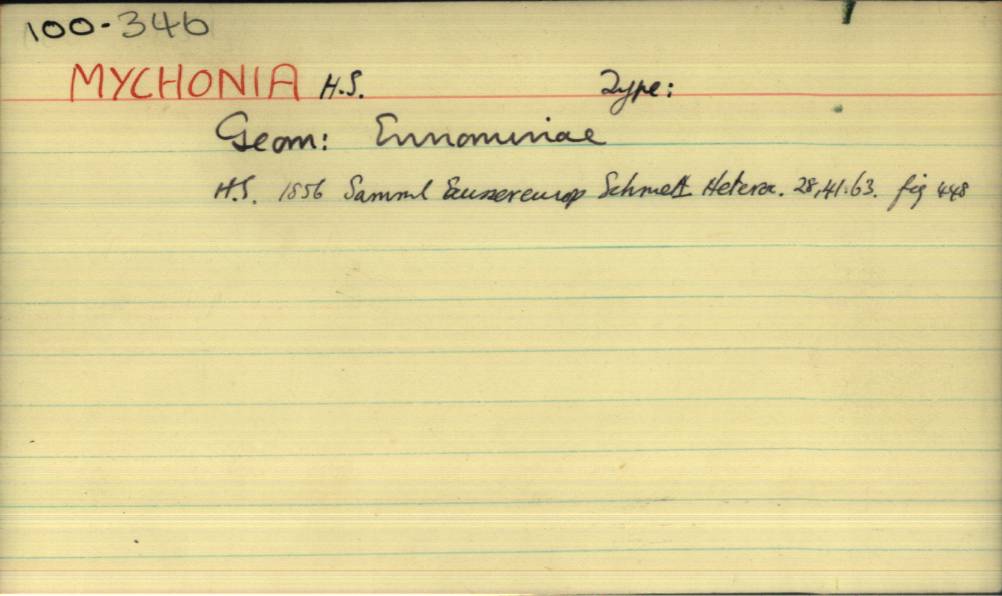 100-346
MYCHONIA H.S. Type:
Geom: Ennominae
H.S. 1856 Samml Aussereurop Schmett Heteroc. 28,41.63. fig 448